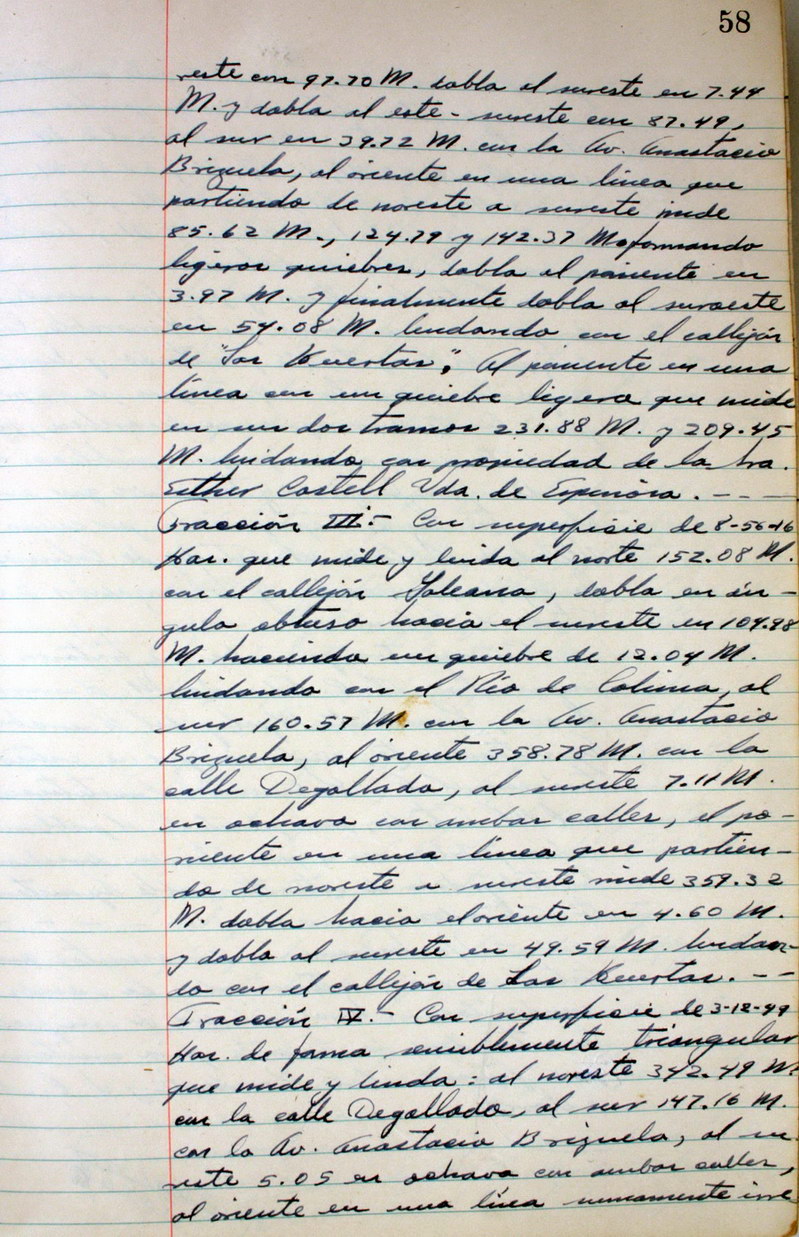 58
reste con 97.70 M. dobla al sureste en 7.44
M. y dobla al este-sureste con 87.49,
al sur en 39.72 M. con la Av. Anastacio
Brizuela, al oriente en una línea que
partiendo de noreste a sureste mide
85.62 M., 124.79 y 142.37 M. formando
ligeros quiebres, dobla el poniente en
3.97 M. y finalmente dobla al suroeste
en 54.08 M. lindando con el callejón
de "Las Huertas", Al poniente en una
línea con un quiebre ligero que mide
en sus dos tramos 231.88 M. y 209.45
M. lindando con propiedad de la Sra.
Esther Castell Vda. de Espinóza. - - -
Fracción III.- Con superficie de 8-56-16
Has. que mide y linda al norte 152.08 M.
con el callejón Galeana, dobla en án-
gulo obtuso hacia el sureste en 104.98
M. haciendo un quiebre de 12.04 M.
lindando con el Río de Colima, al
sur 160.57 M. con la Av. Anastacio
Brizuela, al oriente 358.78 M. con la
calle Degollado, al sureste 7.11 M.
en ochavo con ambas calles, el po-
niente en una línea que partien-
do de noreste a sureste mide 359.32
M. dobla hacia el oriente en 4.60 M.
y dobla al sureste en 49.59 M. lindan-
do con el callejón de Las Huertas. - -
Fracción IV.- Con superficie de 3-12-49
Has. de forma sensiblemente triangular
que mide y linda: al noreste 342.49 M.
con la calle Degollado, al sur 147.16 M.
con la Av. Anastacio Brizuela, al su
reste 5.05 en ochavo con ambas calles,
al oriente en una línea sumamente irre